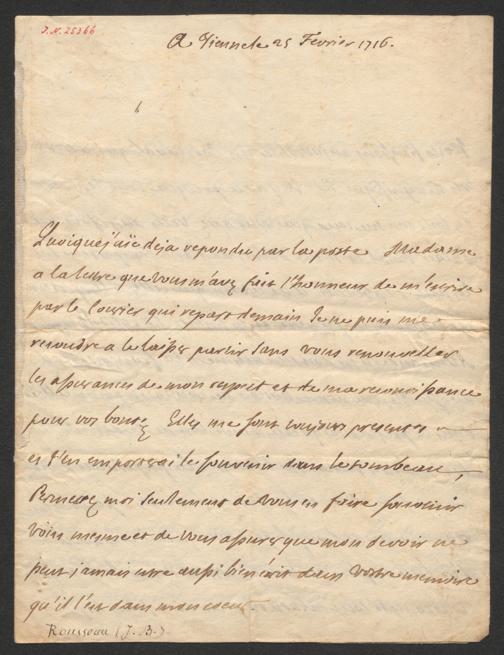 J.N. 25366
A Vienne le 25 Fevrier 1716.
Quoique j'aïe deja repondu par la poste Madame
a la lettre que vous m'avez fait l'honneur de m'ecrire
par le Courier qui repart demain Je ne puis me
resoudre a le laisser partir sans vous renouveller
les assurances de mon respect et de ma reconoissance
pour vos bontez Elles me sont toujours presentes
et J'en emporterai le souvenir dans le tombeau,
Permettez moi seulement de vous en faire souvenir
vous mesme et de vous assurer que mon devoir ne
peut jamais estre aussi bien écrit dans vostre memoire
qu'il l'est dans mon coeur
Rousseau (J. B.)